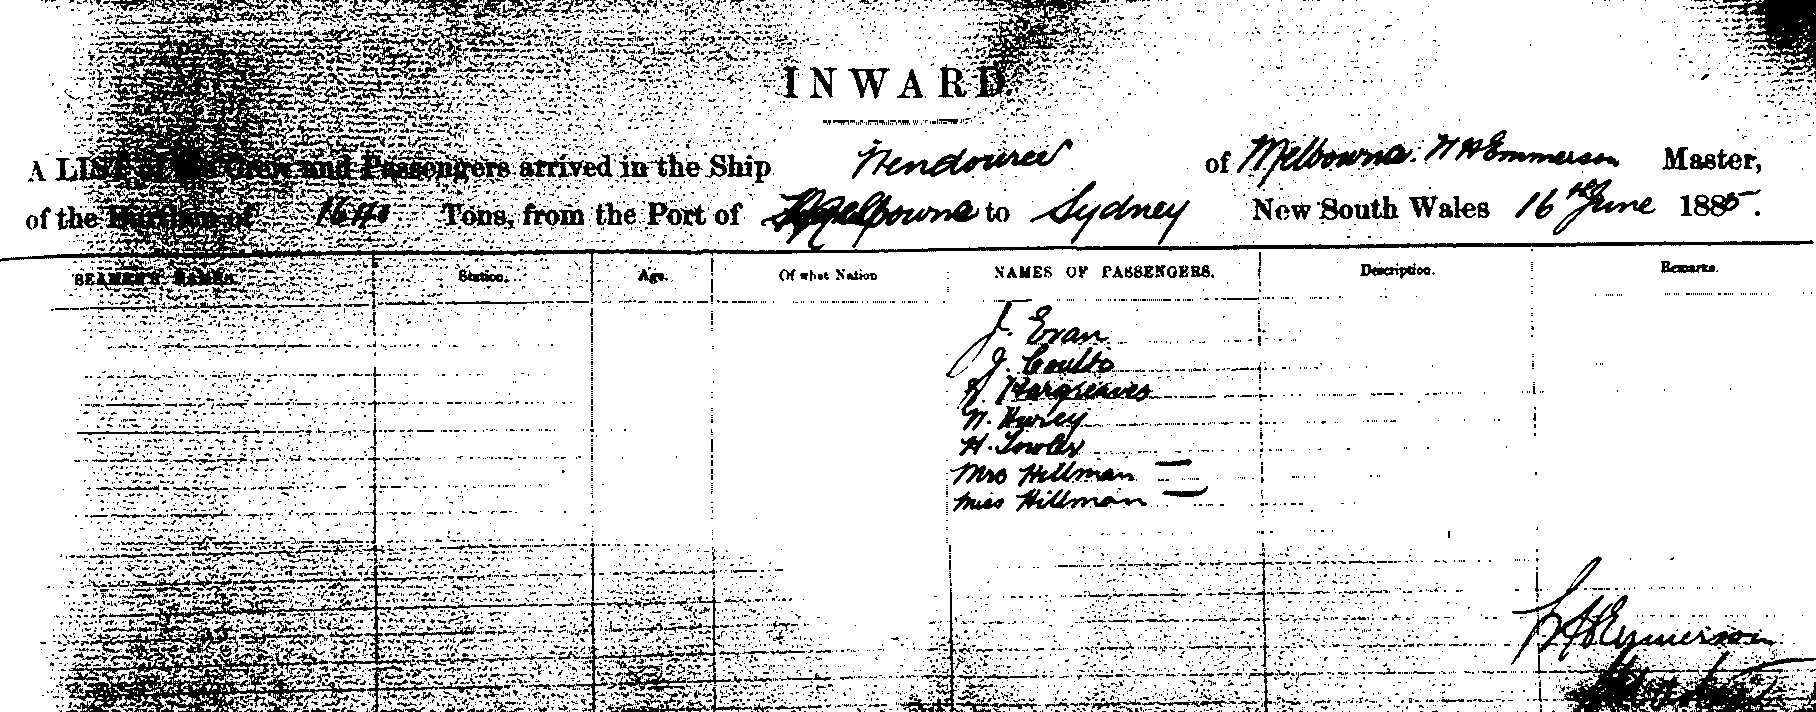 INWARD
A LIST of the Crew and Passengers arrived in the Ship Wendouree of Melbourne. W H Emmerson Master,
of the Burthen of 1640 Tons, from the Port of Melbourne to Sydney New South Wales 16th June 1885.
SEAMEN'S NAMES. Station. Age. Of what Nation NAMES OF PASSENGERS. Description. Remarks.
J. Evan
J. Coulto
Hargreaves
W. Hurley
H. Fowler
Mrs Hillman
Miss Hillman
W H Emmerson